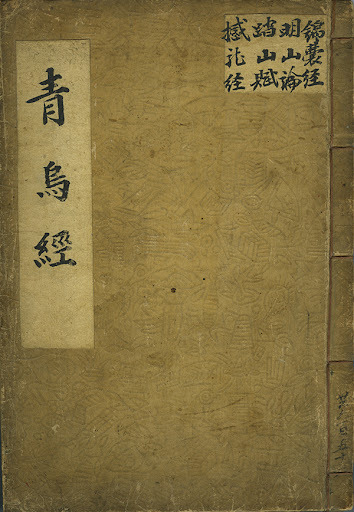 青烏經
錦囊経
明山論
踏山賦
撼龍経